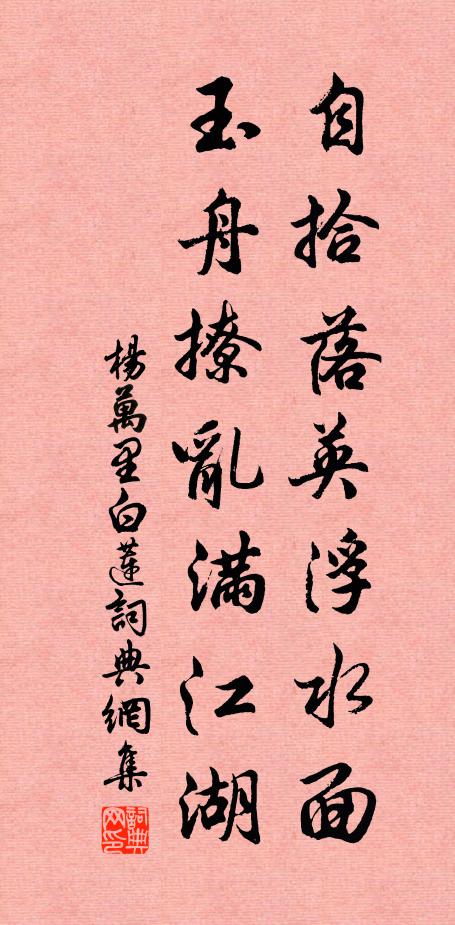 自拾落英浮水面
玉舟撩亂滿江湖
楊萬里白蓮詞典網集
詞典網印